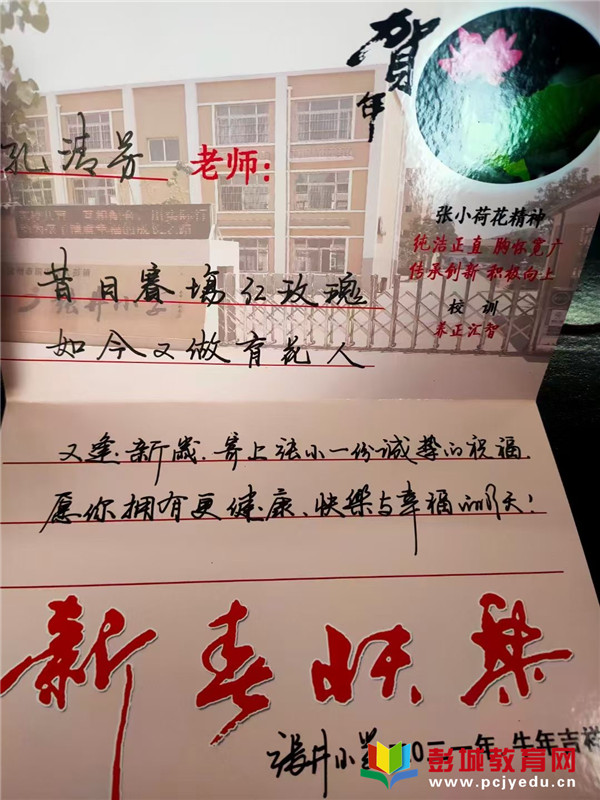 贺年
孔清芳 老师：
张小荷花精神
纯洁正直 胸怀宽广
传承创新 积极向上
校 训
养正汇智
昔日赛場红玫瑰
如今又做育花人
又逢新歲，寄上张小一份诚挚的祝福，
愿你拥有更健康、快樂与幸福的明天！
新春快樂
张井小学 二〇二一年 牛年吉祥
彭城教育网
www.pcjyedu.cn